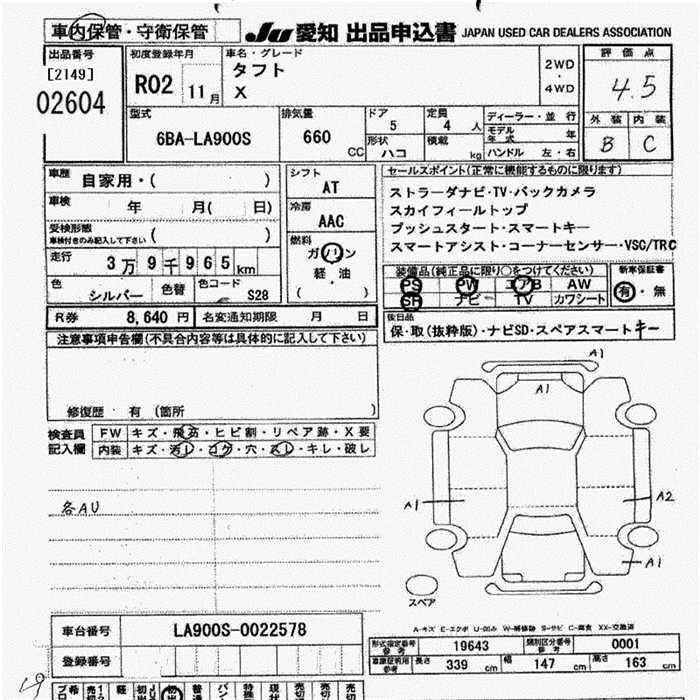 車内保管・守衛保管
JU 愛知 出品申込書 JAPAN USED CAR DEALERS ASSOCIATION
出品番号
[2149]
02604
初度登録年月
R02 11月
車名・グレード
タフト
X
2WD
・
4WD
評価点
4.5
外装 内装
B C
型式
6BA-LA900S
排気量
660 CC
ドア
5
定員
4 人
形状
ハコ
積載
kg
ディーラー・並行
モデル年式 年
ハンドル 左・右
車歴 自家用・( )
車検 年 月( 日)
受検形態
車検付きのみ記入して下さい ( )
走行 3万9千965km
色 シルバー 色替 色コード S28
R券 8,640円 名変通知期限 月 日
シフト
AT
冷房
AAC
燃料
ガソリン
軽・油
( )
セールスポイント(正常に機能するものに限ります)
ストラーダナビ・TV・バックカメラ
スカイフィールトップ
プッシュスタート・スマートキー
スマートアシスト・コーナーセンサー・VSC/TRC
装備品(純正品に限り○をつけてください)
PS PW エアB AW
SR ナビ TV カワシート
新車保証書
有・無
後日品
保・取(抜粋版)・ナビSD・スペアスマートキー
注意事項申告欄(不具合内容等は具体的に記入して下さい)
修復歴・有(箇所 )
検査員記入欄
FW キズ・飛石・ヒビ割・リペア跡・X要
内装 キズ・汚れ・コゲ・穴・スレ・キレ・破レ
各AU
A1
A1
A1
A2
A1
スペア
A-キズ E-エクボ U-凹み W-補修跡 S-サビ C-腐食 XX-交換済
車台番号 LA900S-0022578
登録番号
形式指定番号 参考 19643 類別区分番号 参考 0001
車庫証明用 参考 長さ 339 cm 幅 147 cm 高さ 163 cm